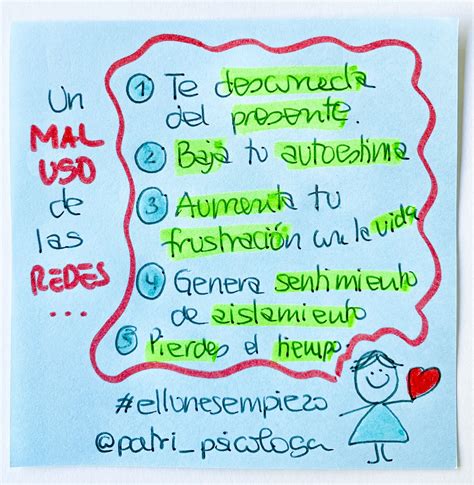 Un
MAL
USO
de
las
REDES
...
1 Te desconecta
del presente.
2 Baja tu autoestima
3 Aumenta tu
frustración con la vida
4 Genera sentimiento
de aislamiento
5 Pierdes el tiempo
#ellunesempiezo
@patri_psicologa